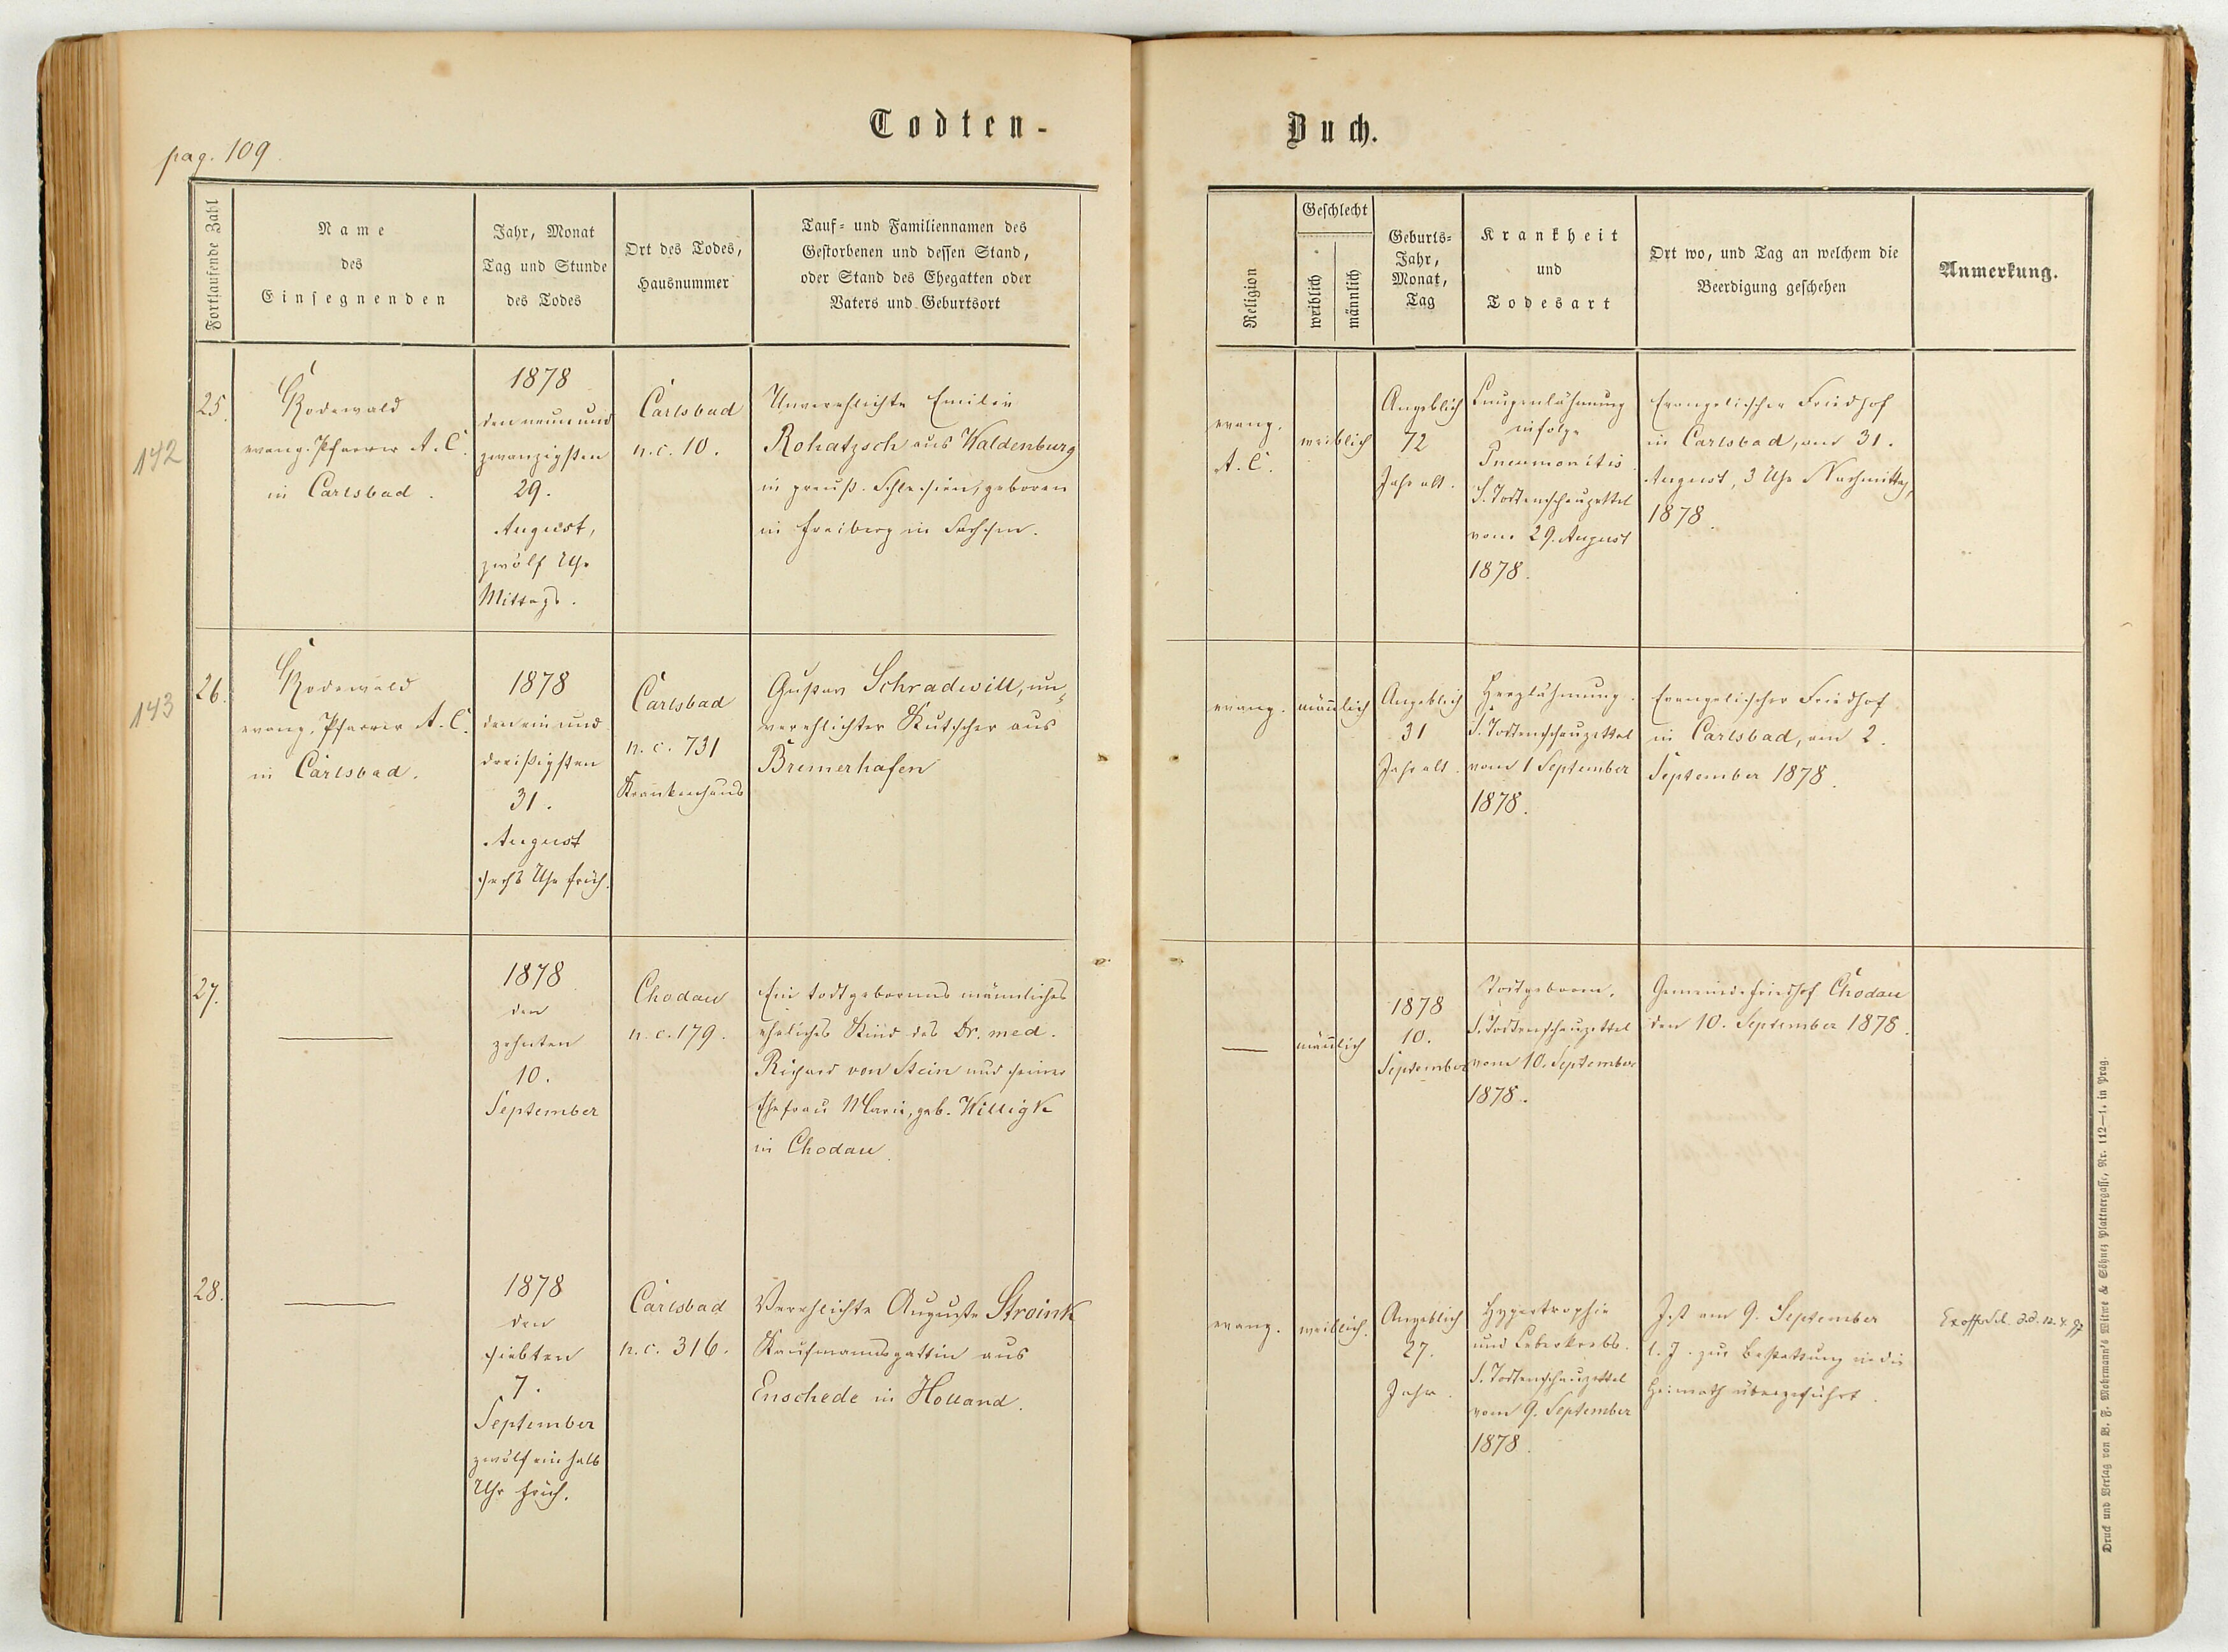 pag. 109.
Todten-
Fortlaufende Zahl
Name
des
Einsegnenden
Jahr, Monat
Tag und Stunde
des Todes
Ort des Todes,
Hausnummer
Tauf- und Familiennamen des
Gestorbenen und dessen Stand,
oder Stand des Ehegatten oder
Vaters und Geburtsort
142
25.
Rodewald
evang. Pfarrer A. C.
in Carlsbad.
1878
den neun und
zwanzigsten
29.
August,
zwölf Uhr
Mittags.
Carlsbad
n. c. 10.
Unverehlichte Emilie
Rohatzsch aus Waldenburg
in preuß. Schlesien, geboren
in Freiberg in Sachsen.
143
26.
Rodewald
evang. Pfarrer A. C.
in Carlsbad.
1878
den ein und
dreißigsten
31.
August
sechs Uhr früh.
Carlsbad
n. c. 731
Krankenhaus
Gustav Schradwill, un-
verehlichter Kutscher aus
Bremerhafen
27.
1878
den
zehnten
10.
September
Chodau
n. c. 179.
Ein todtgebornes männliches
eheliches Kind des Dr. med.
Richard von Stein und seiner
Ehefrau Marie, geb. Willigk
in Chodau.
28.
1878
den
siebten
7.
September
zwölf ein halb
Uhr früh.
Carlsbad
n. c. 316.
Verehlichte Auguste Stroink
Kaufmannsgattin aus
Enschede in Holland.
Buch.
Religion
Geschlecht
weiblich
männlich
Geburts-
Jahr,
Monat,
Tag
Krankheit
und
Todesart
Ort wo, und Tag an welchem die
Beerdigung geschehen
Anmerkung.
evang.
A. C.
weiblich
Angeblich
72
Jahr alt.
Lungenlähmung
infolge
Pneumonitis.
S. Todtenschauzettel
vom 29. August
1878.
Evangelischer Friedhof
in Carlsbad, am 31.
August, 3 Uhr Nachmittag,
1878.
evang.
männlich
Angeblich
31
Jahr alt.
Herzlähmung.
S. Todtenschauzettel
vom 1 September
1878.
Evangelischer Friedhof
in Carlsbad, am 2.
September 1878.
männlich
1878
10.
September
Todtgeboren.
S. Todtenschauzettel
vom 10. September
1878.
Gemeindefriedhof Chodau
den 10. September 1878.
evang.
weiblich.
Angeblich
27.
Jahr.
Hypertrophie
und Leberkrebs.
S. Todtenschauzettel
vom 9. September
1878.
Ist am 9. September
l. J. zur Bestattung in die
Heimath übergeführt.
Druck und Verlag von B. F. Mohrmann's Witwe & Söhne, Plattnergasse, Nr. 112—1. in Prag.